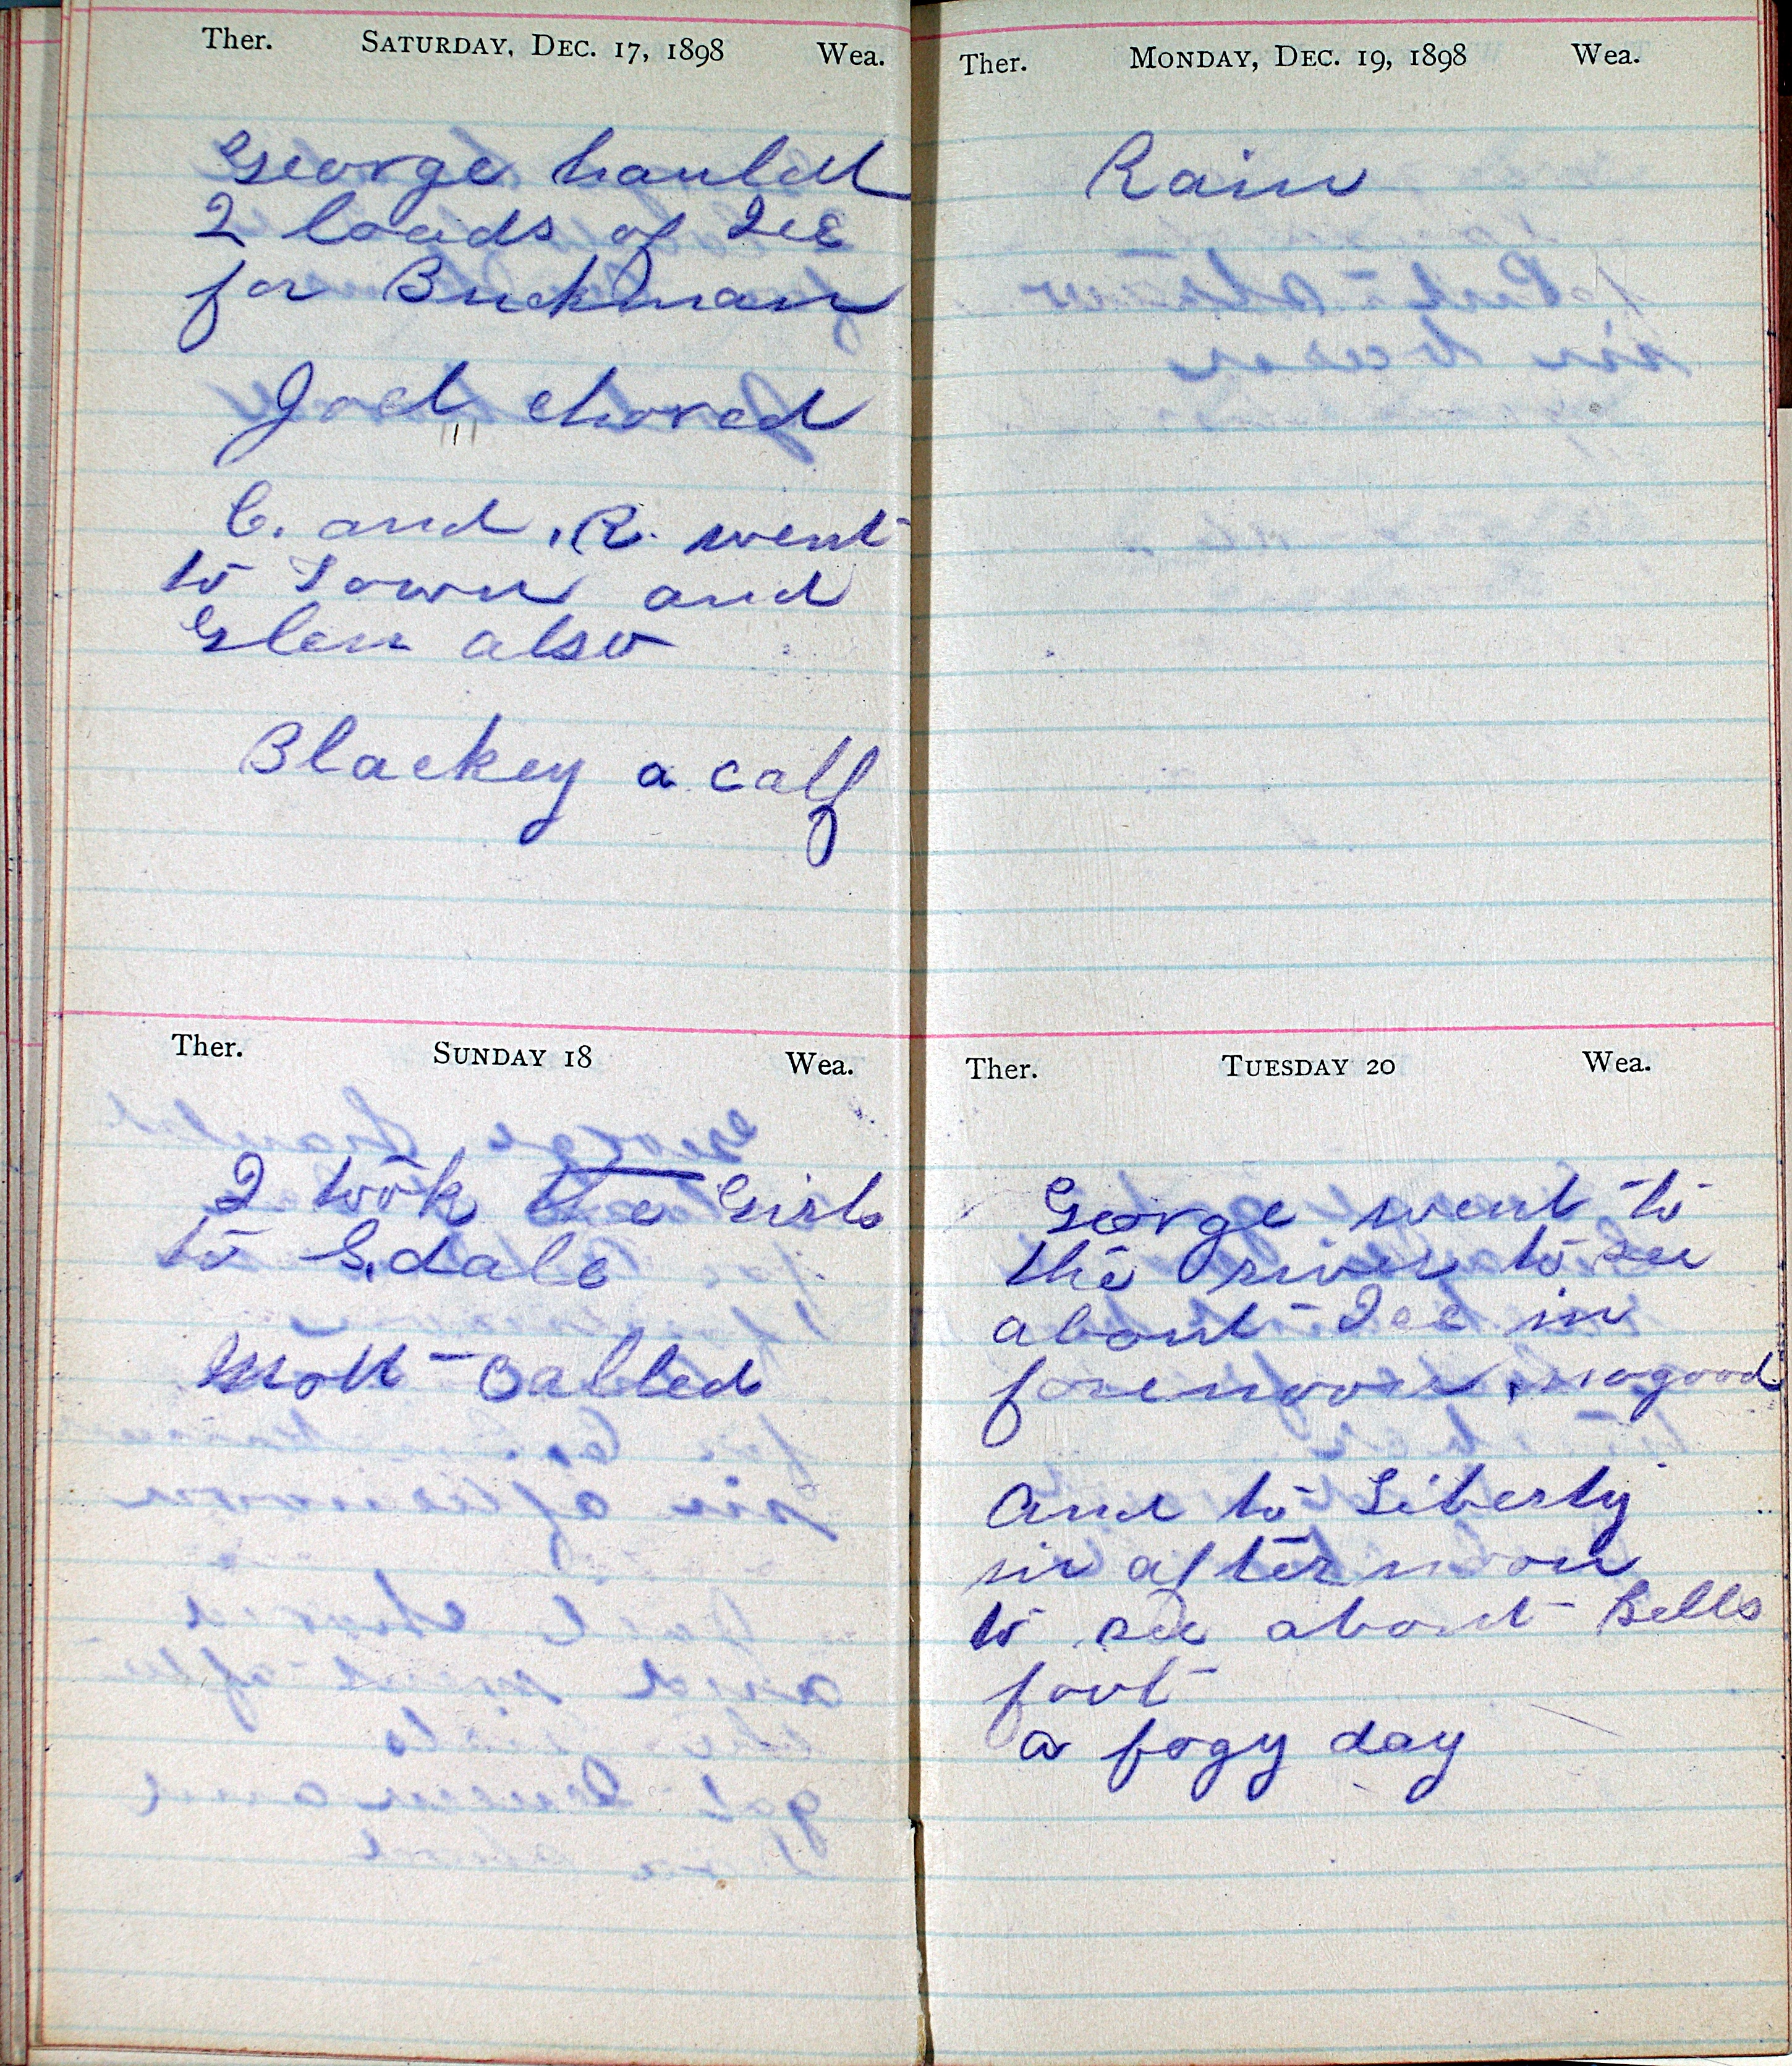 Ther. SATURDAY, DEC. 17, 1898 Wea.
George hauled
2 loads of Ice
for Buckman
Joel chored
C. and R. went
to Town and
Glen also
Blackey a calf
Ther. SUNDAY 18 Wea.
I took the Girls
to G,dale
Mott called
Ther. MONDAY, DEC. 19, 1898 Wea.
Rain
Ther. TUESDAY 20 Wea.
George went to
the river to see
about Ice in
forenoon, no good
And to Liberty
in afternoon
to see about Bells
foot
a fogy day